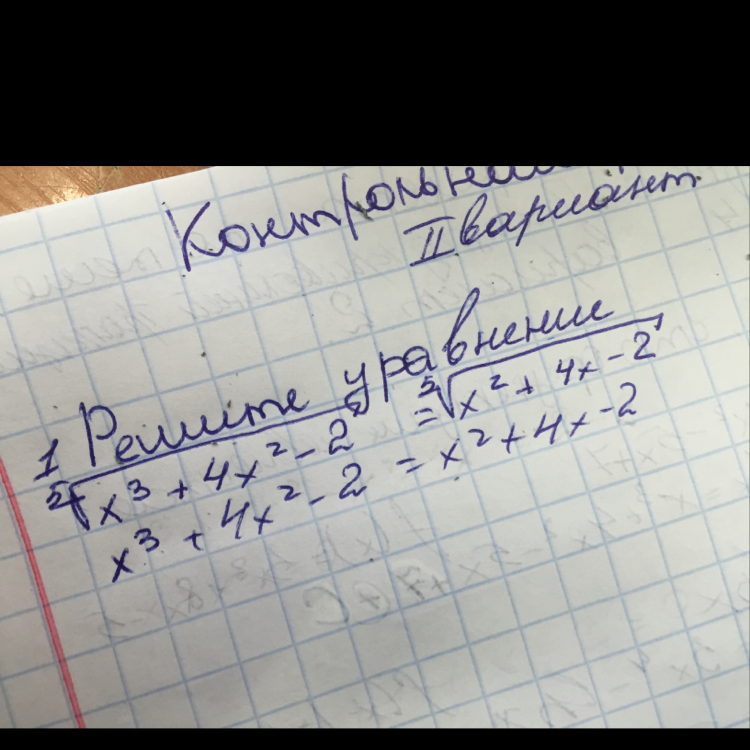 II вариант
1 Решите уравнение
⁵√x³ + 4x² - 2 = ⁵√x² + 4x - 2
x³ + 4x² - 2 = x² + 4x - 2